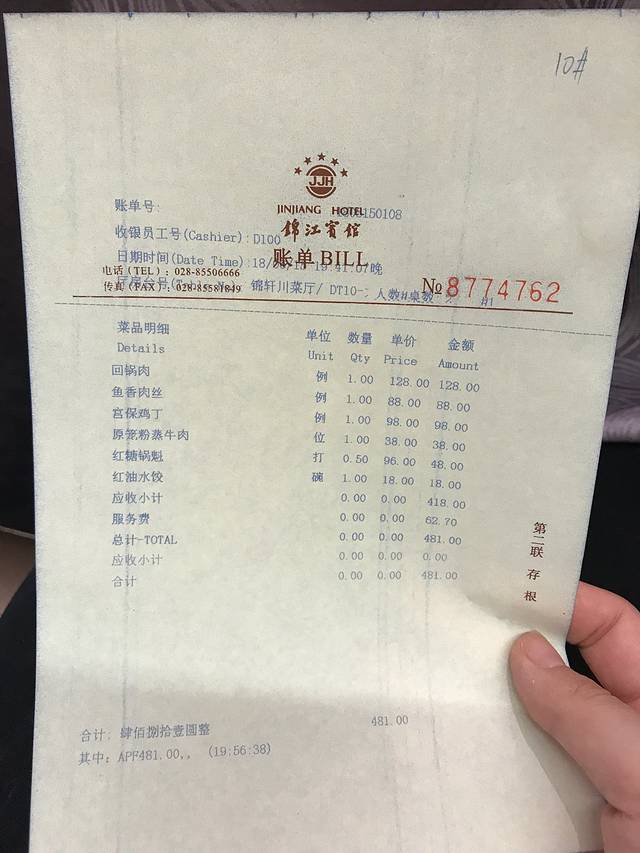 10#
JJH
JINJIANG HOTEL
錦江賓館
账单号: 150108
收银员工号(Cashier): D100
账单 BILL
日期时间(Date Time): 19:41:07晚
电话(TEL): 028-85506666
传真(FAX): 028-85581849
锦轩川菜厅/ DT10- 人数#桌数: #1
№8774762
菜品明细 单位 数量 单价 金额
Details Unit Qty Price Amount
回锅肉 例 1.00 128.00 128.00
鱼香肉丝 例 1.00 88.00 88.00
宫保鸡丁 例 1.00 98.00 98.00
原笼粉蒸牛肉 位 1.00 38.00 38.00
红糖锅魁 打 0.50 96.00 48.00
红油水饺 碗 1.00 18.00 18.00
应收小计 0.00 0.00 418.00
服务费 0.00 0.00 62.70
总计-TOTAL 0.00 0.00 481.00
应收小计 0.00 0.00 0.00
合计 0.00 0.00 481.00
第二联 存根
合计: 肆佰捌拾壹圆整 481.00
其中: APF481.00,, (19:56:38)